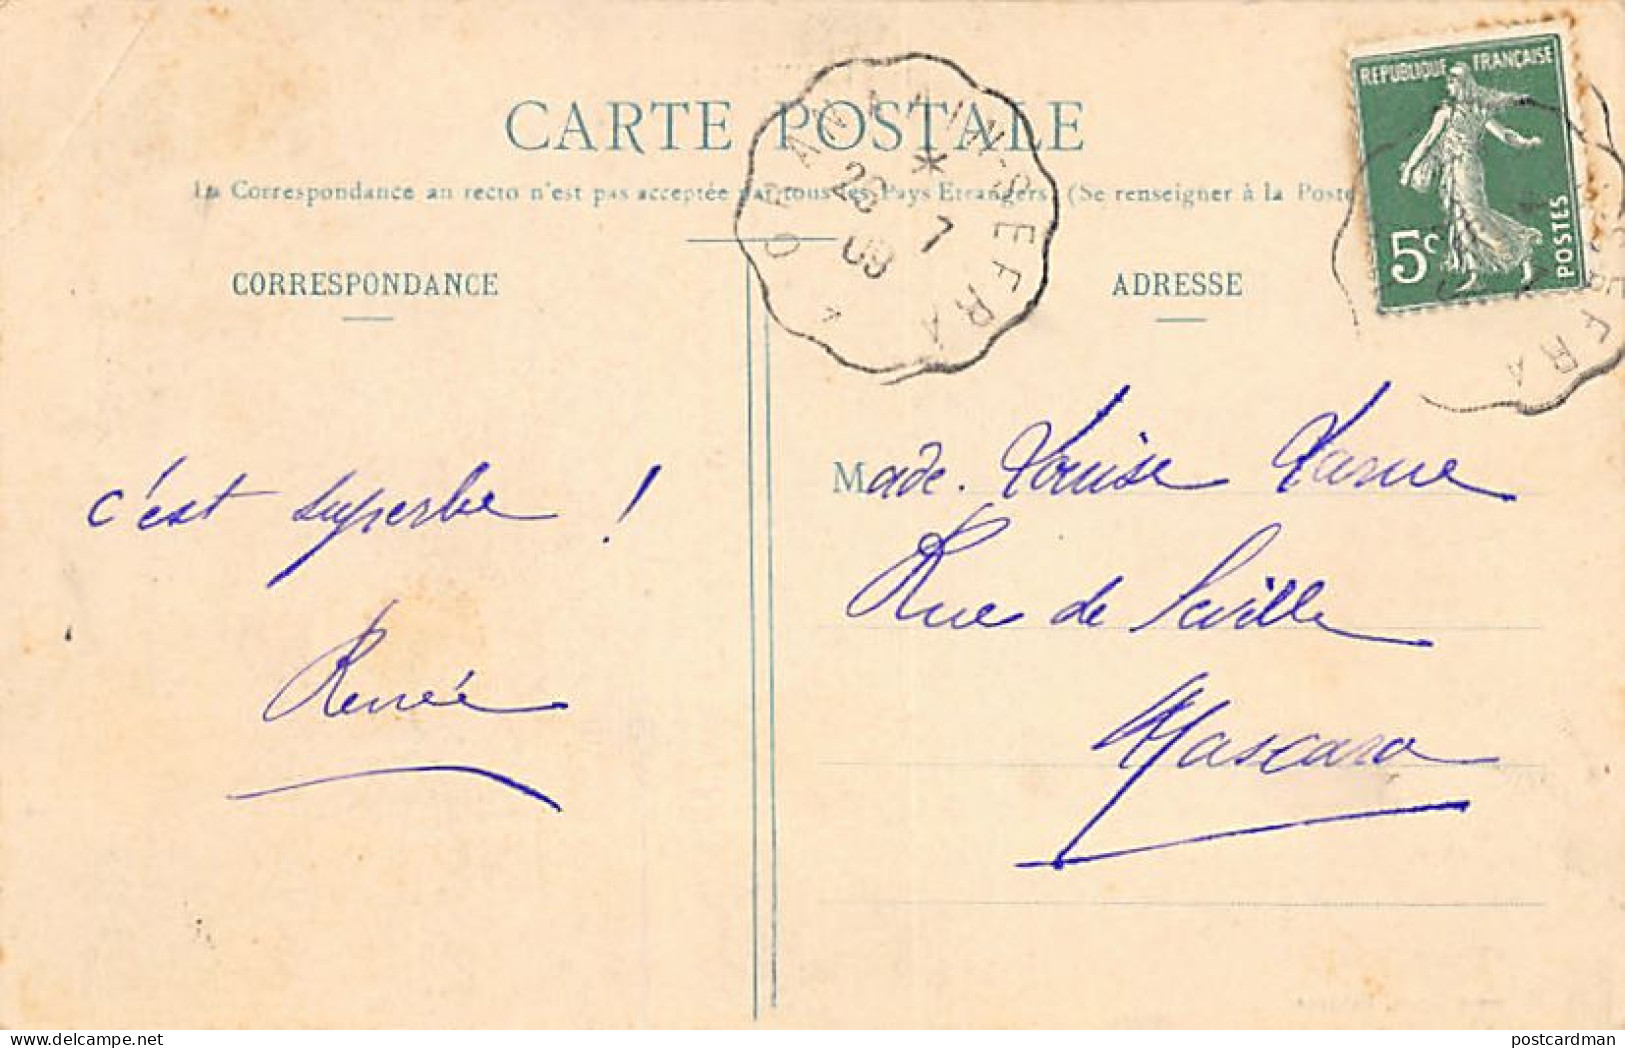 CARTE POSTALE
La Correspondance au recto n'est pas acceptée par tous les Pays Etrangers (Se renseigner à la Poste
CORRESPONDANCE
ADRESSE
REPUBLIQUE FRANÇAISE
5c
POSTES
22
7
09
c'est superbe !
Renée
Made. Louise
Rue de Séville
Mascara
postcardman